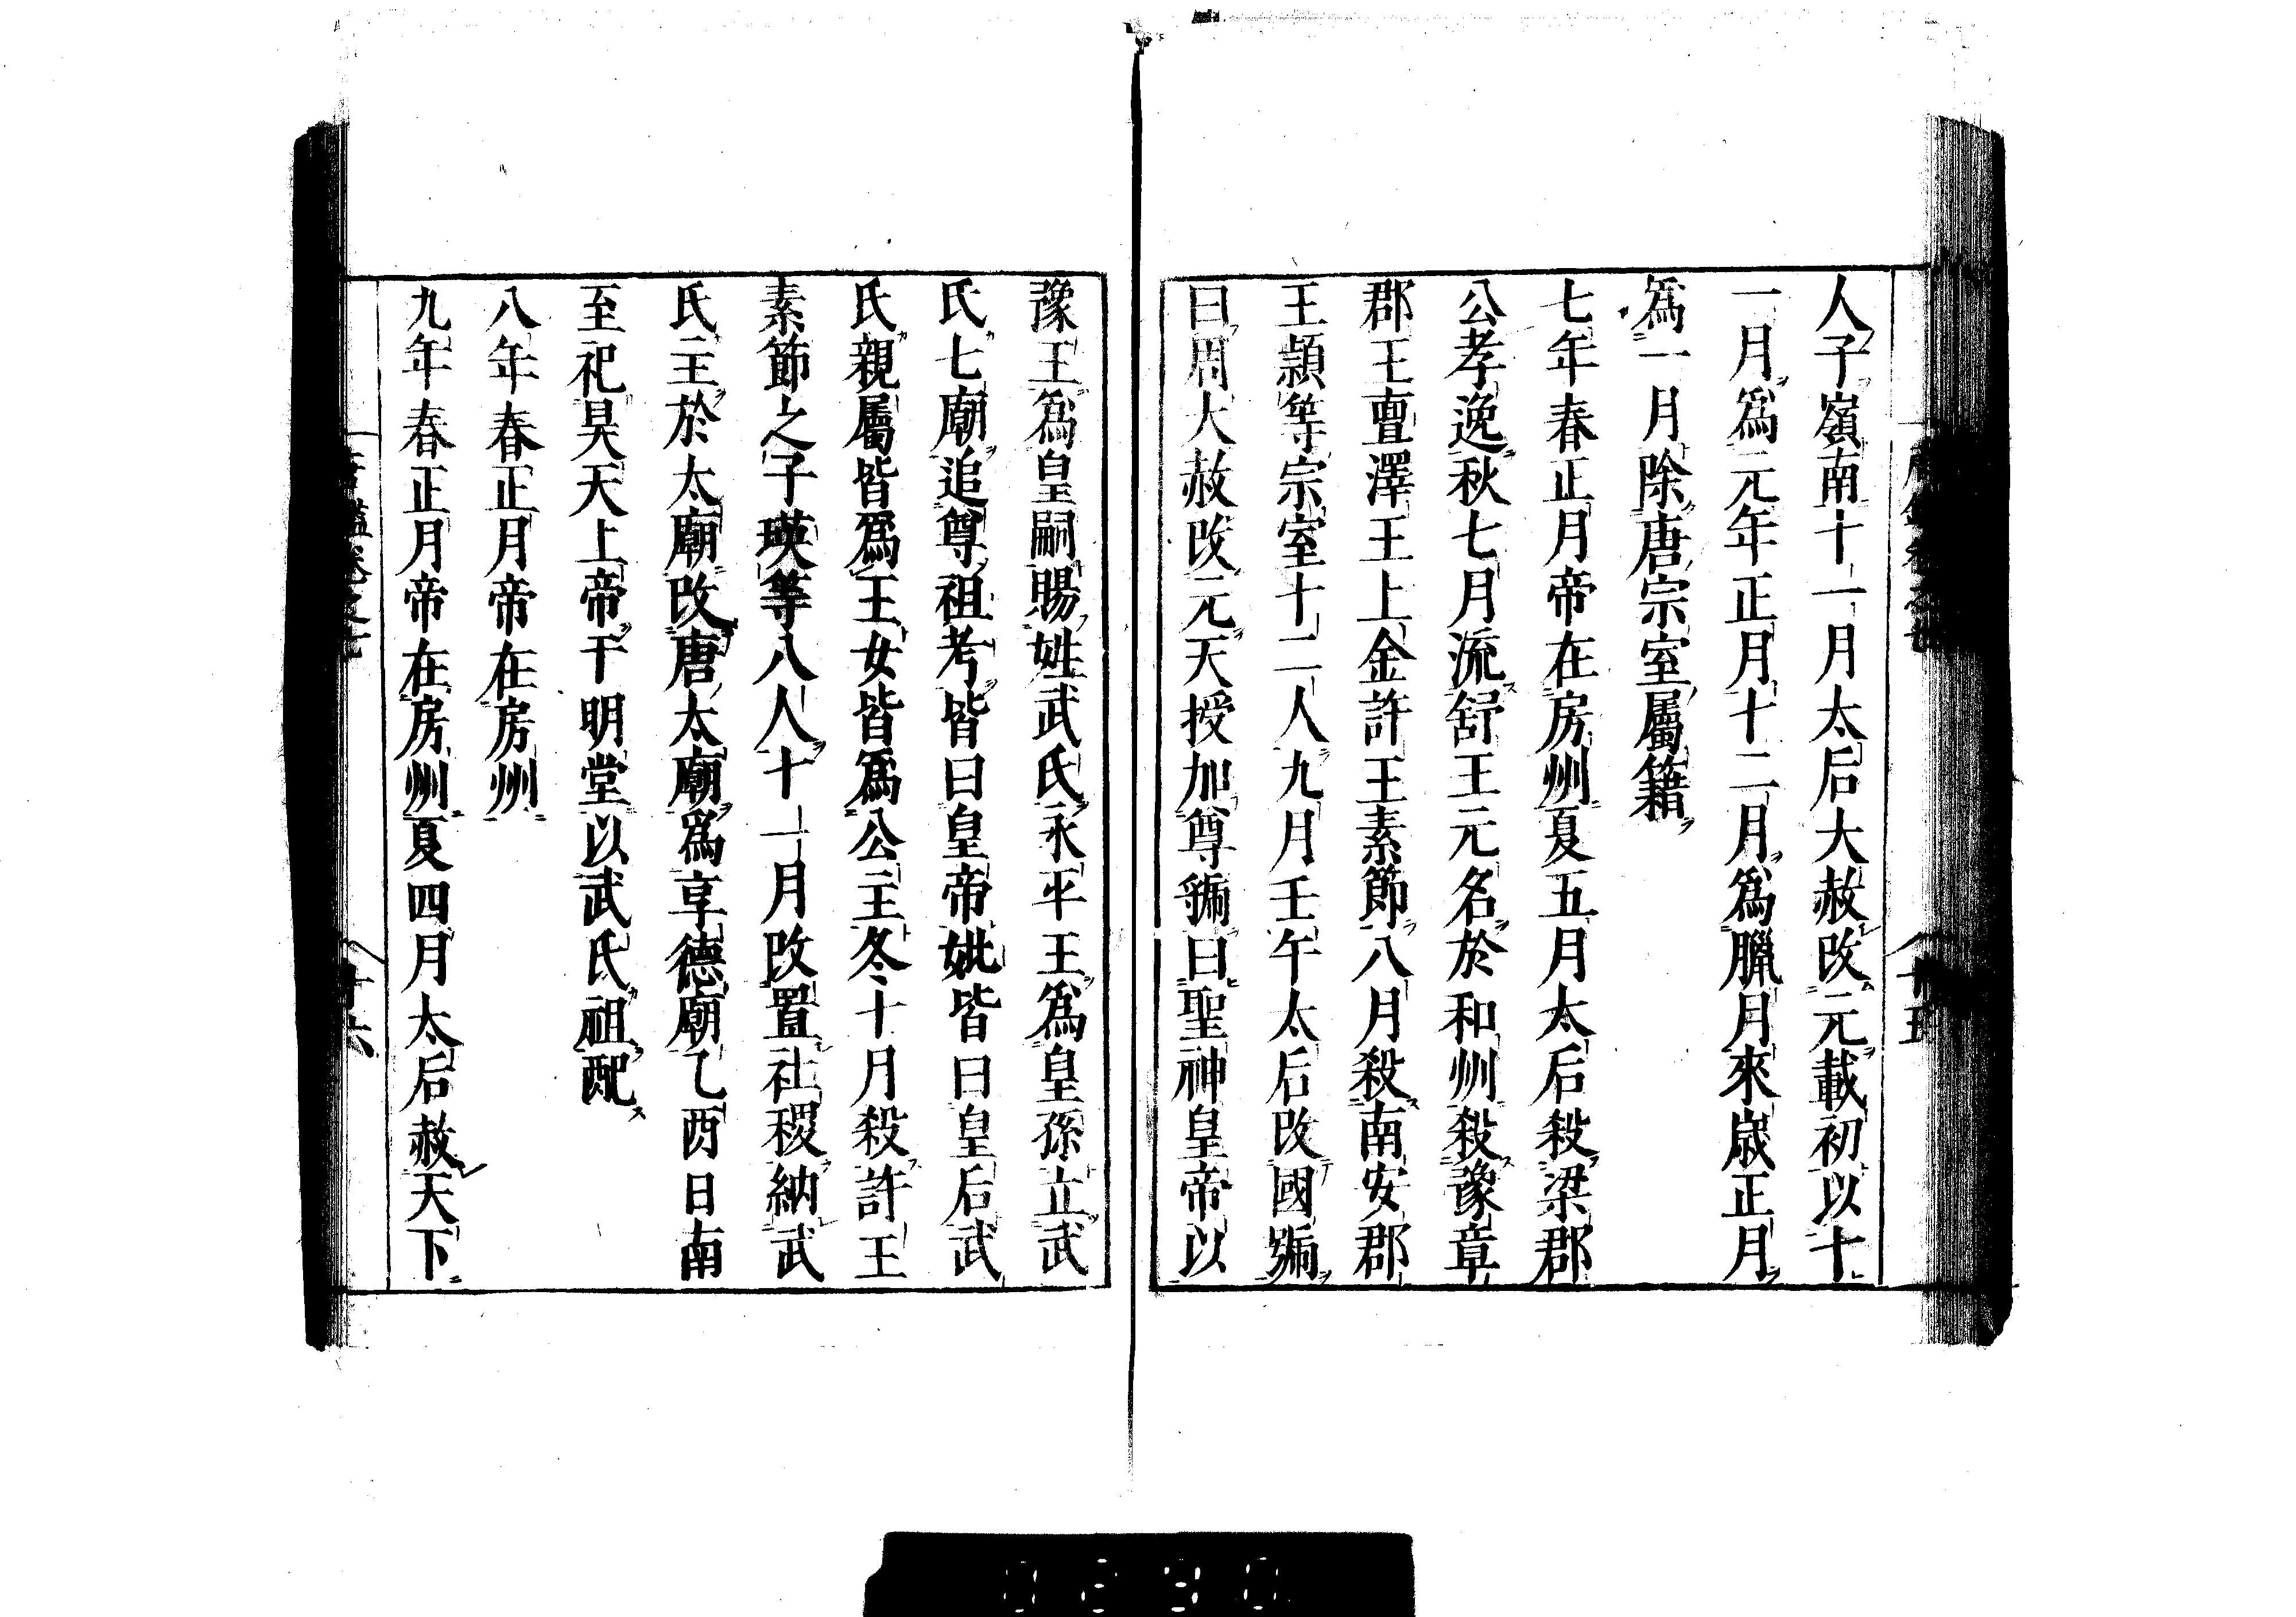 人子嶺南十一月太后大赦改元載初以十
一月爲元年正月十二月爲臘月來歲正月
爲一月除唐宗室屬籍
七年春正月帝在房州夏五月太后殺梁郡
公孝逸秋七月流舒王元名於和州殺豫章
郡王亶澤王上金許王素節八月殺南安郡
王頴等宗室十二人九月壬午太后改國號
曰周大赦改元天授加尊號曰聖神皇帝以
豫王爲皇嗣賜姓武氏永平王爲皇孫立武
氏七廟追尊祖考皆曰皇帝妣皆曰皇后武
氏親屬皆爲王女皆爲公主冬十月殺許王
素節之子瑛等八人十一月改置社稷納武
氏主於太廟改唐太廟爲享德廟乙酉日南
至祀昊天上帝于明堂以武氏祖配
八年春正月帝在房州
九年春正月帝在房州夏四月太后赦天下
十六